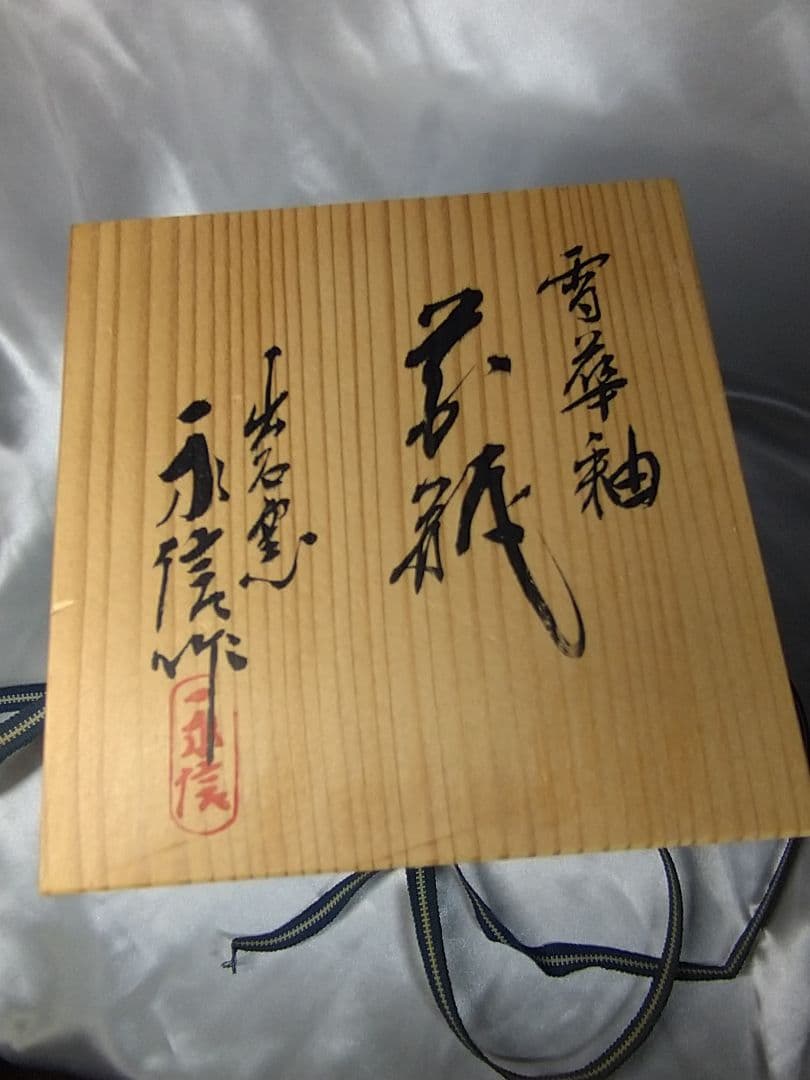 雪華釉
花瓶
出石窯
永信作
永信